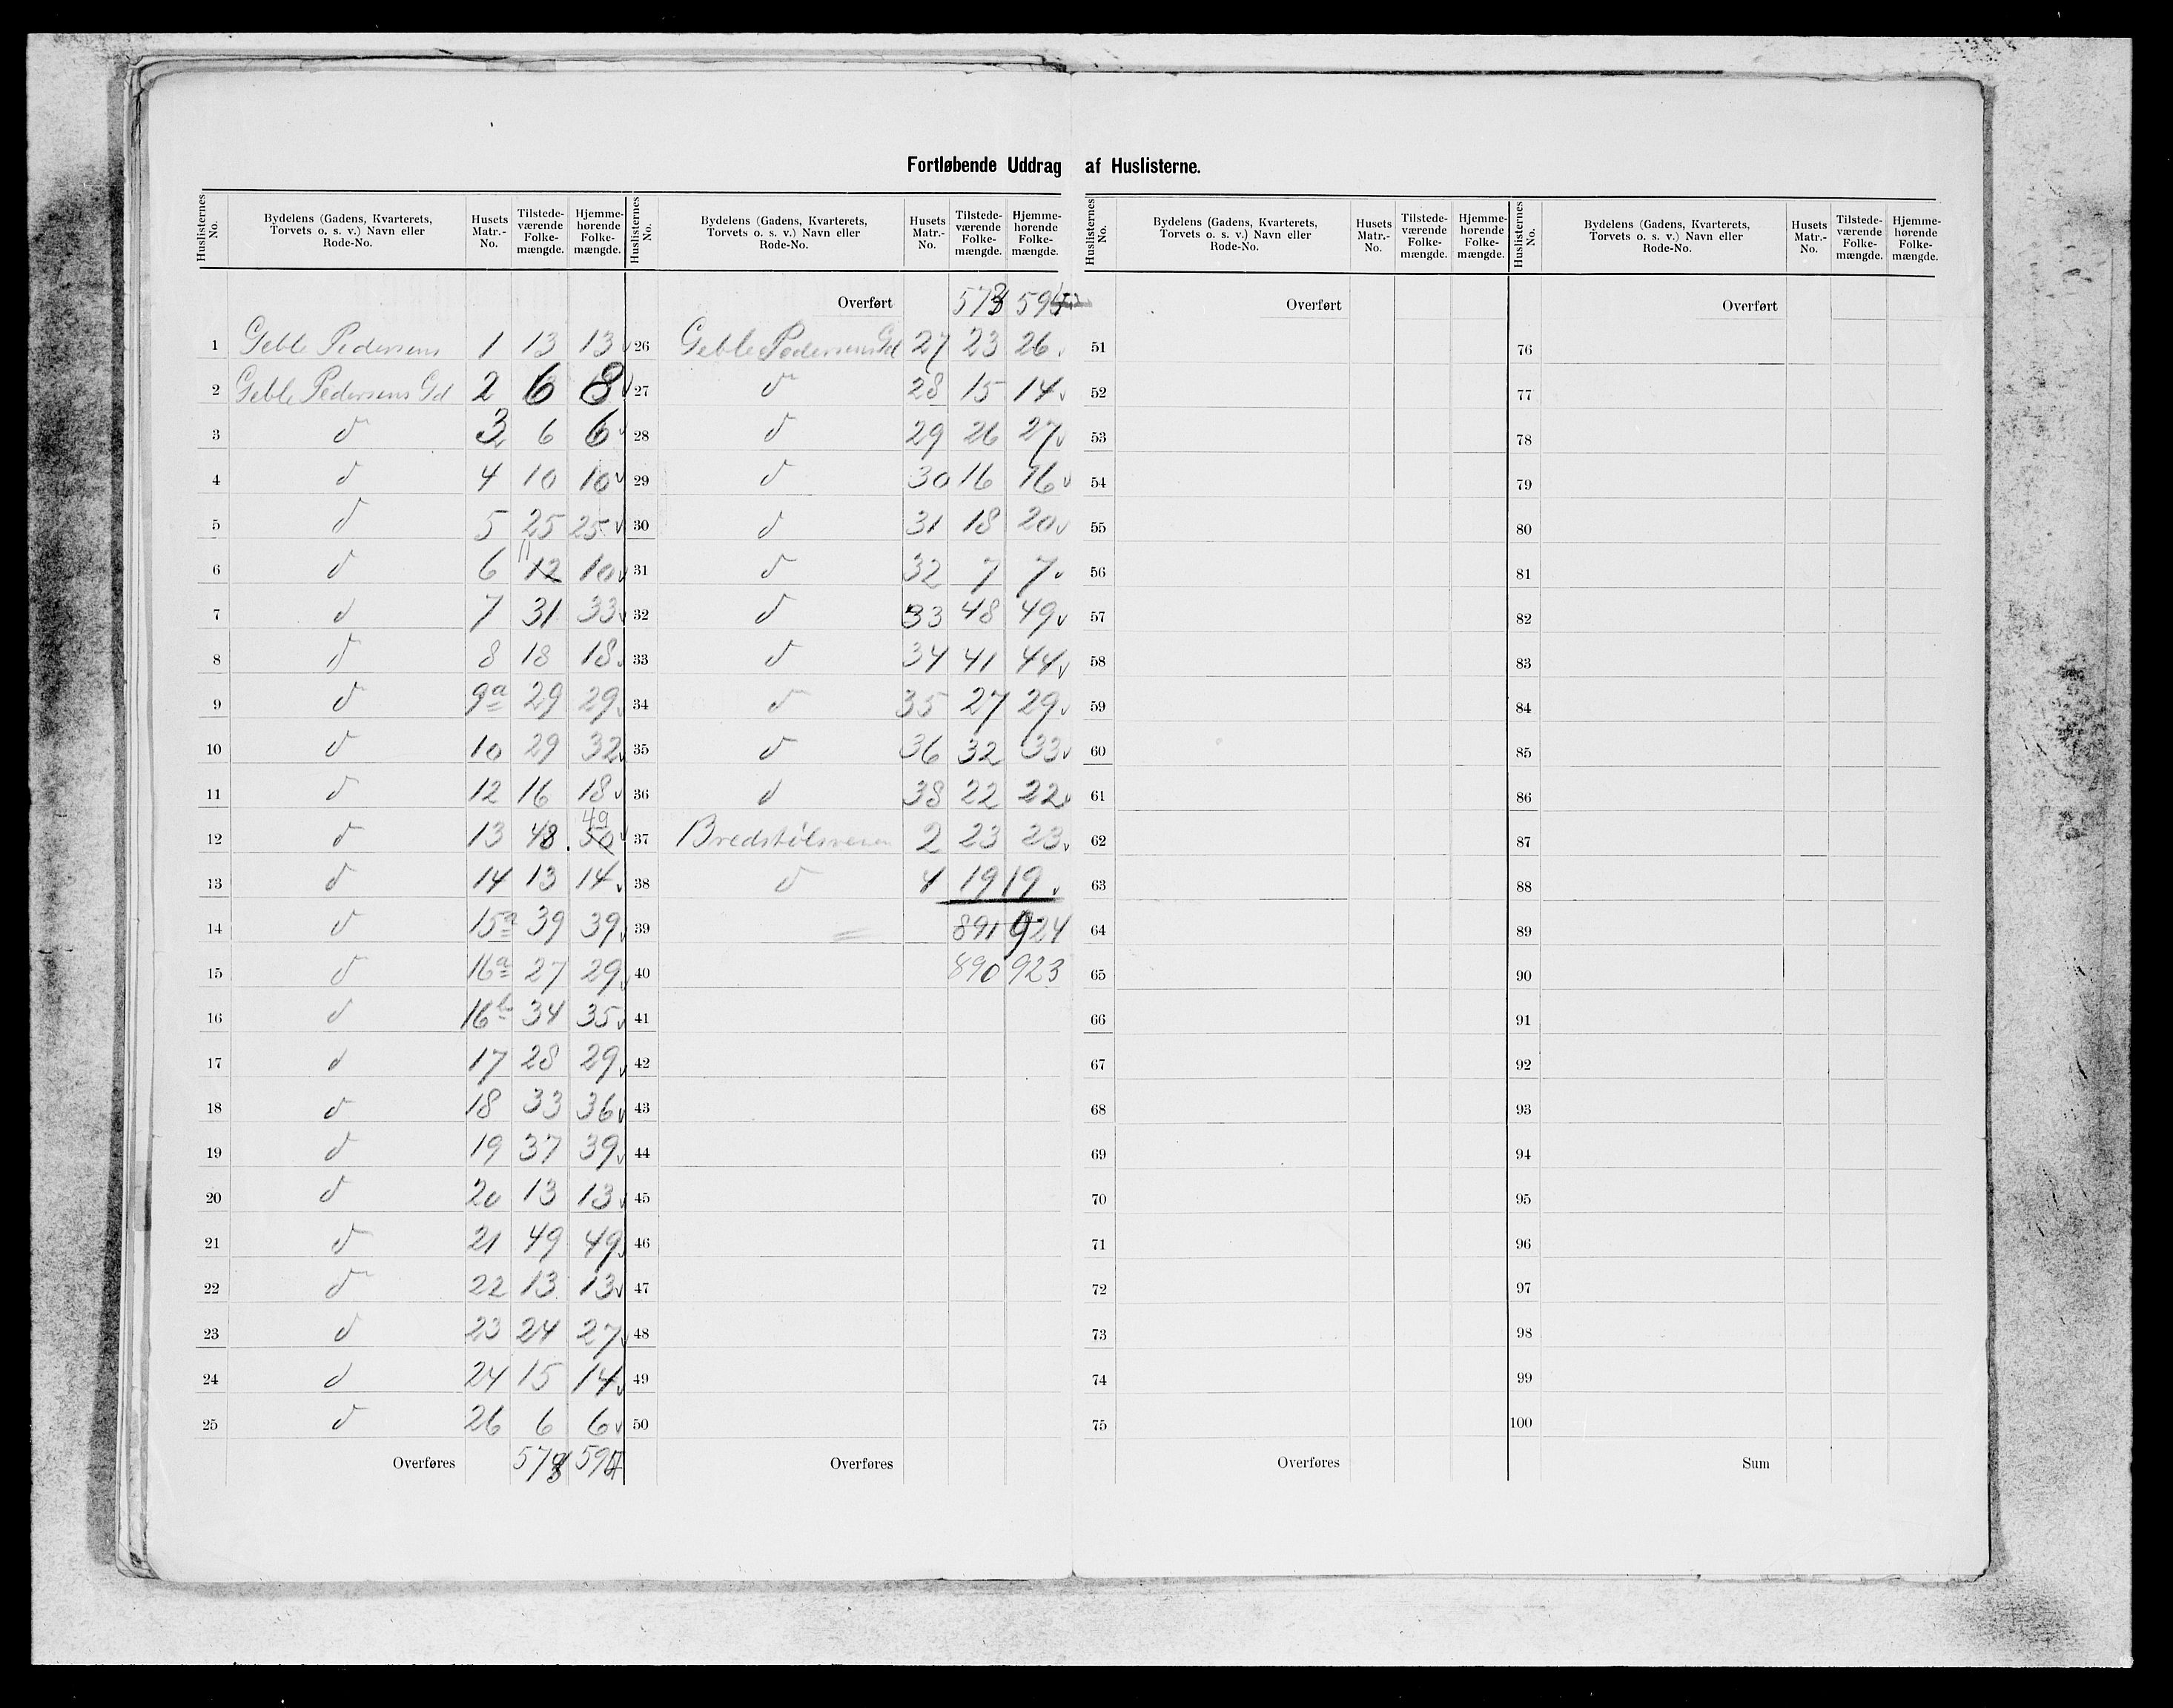 Fortløbende Uddrag af Huslisterne.
Huslisternes No. Bydelens (Gadens, Kvarterets, Torvets o. s. v.) Navn eller Rode-No. Husets Matr.-No. Tilstedeværende Folkemængde. Hjemmehørende Folkemængde.
1 Geble Pedersens 1 13 13
2 Geble Pedersens Gd 2 6 8
3 d 3 6 6
4 d 4 10 10
5 d 5 25 25
6 d 6 11 12 10
7 d 7 31 33
8 d 8 18 18
9 d 9a 29 29
10 d 10 29 32
11 d 12 16 18
12 d 13 48 49 50
13 d 14 13 14
14 d 15a 39 39
15 d 16a 27 29
16 d 16b 34 35
17 d 17 28 29
18 d 18 33 36
19 d 19 37 39
20 d 20 13 13
21 d 21 49 49
22 d 22 13 13
23 d 23 24 27
24 d 24 15 14
25 d 26 6 6
Overføres
Huslisternes No. Bydelens (Gadens, Kvarterets, Torvets o. s. v.) Navn eller Rode-No. Husets Matr.-No. Tilstedeværende Folkemængde. Hjemmehørende Folkemængde.
Overført
26 Geble Pedersens Gd 27 23 26
27 d 28 15 14
28 d 29 26 27
29 d 30 16 16
30 d 31 18 20
31 d 32 7 7
32 d 33 48 49
33 d 34 41 44
34 d 35 27 29
35 d 36 32 33
36 d 38 22 22
37 2 23 23
38 d 4 19 19
39 891 924
40 890 923
41
42
43
44
45
46
47
48
49
50
Overføres
Huslisternes No. Bydelens (Gadens, Kvarterets, Torvets o. s. v.) Navn eller Rode-No. Husets Matr.-No. Tilstedeværende Folkemængde. Hjemmehørende Folkemængde.
Overført
51
52
53
54
55
56
57
58
59
60
61
62
63
64
65
66
67
68
69
70
71
72
73
74
75
Overføres
Huslisternes No. Bydelens (Gadens, Kvarterets, Torvets o. s. v.) Navn eller Rode-No. Husets Matr.-No. Tilstedeværende Folkemængde. Hjemmehørende Folkemængde.
Overført
76
77
78
79
80
81
82
83
84
85
86
87
88
89
90
91
92
93
94
95
96
97
98
99
100
Sum